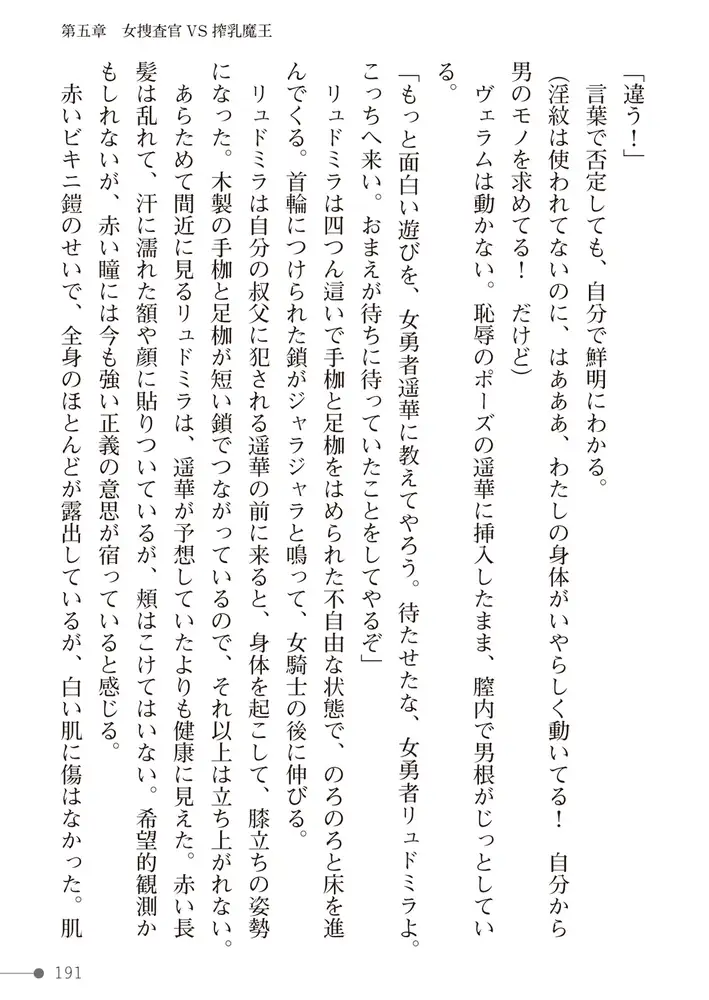 第五章　女捜査官VS搾乳魔王
「違う！」
言葉で否定しても、自分で鮮明にわかる。
（淫紋は使われてないのに、はあああ、わたしの身体がいやらしく動いてる！　自分から
男のモノを求めてる！　だけど）
ヴェラムは動かない。恥辱のポーズの遥華に挿入したまま、膣内で男根がじっとしてい
る。
「もっと面白い遊びを、女勇者遥華に教えてやろう。待たせたな、女勇者リュドミラよ。
こっちへ来い。おまえが待ちに待っていたことをしてやるぞ」
リュドミラは四つん這いで手枷と足枷をはめられた不自由な状態で、のろのろと床を進
んでくる。首輪につけられた鎖がジャラジャラと鳴って、女騎士の後に伸びる。
リュドミラは自分の叔父に犯される遥華の前に来ると、身体を起こして、膝立ちの姿勢
になった。木製の手枷と足枷が短い鎖でつながっているので、それ以上は立ち上がれない。
あらためて間近に見るリュドミラは、遥華が予想していたよりも健康に見えた。赤い長
髪は乱れて、汗に濡れた額や顔に貼りついているが、頬はこけてはいない。希望的観測か
もしれないが、赤い瞳には今も強い正義の意思が宿っていると感じる。
赤いビキニ鎧のせいで、全身のほとんどが露出しているが、白い肌に傷はなかった。肌
191